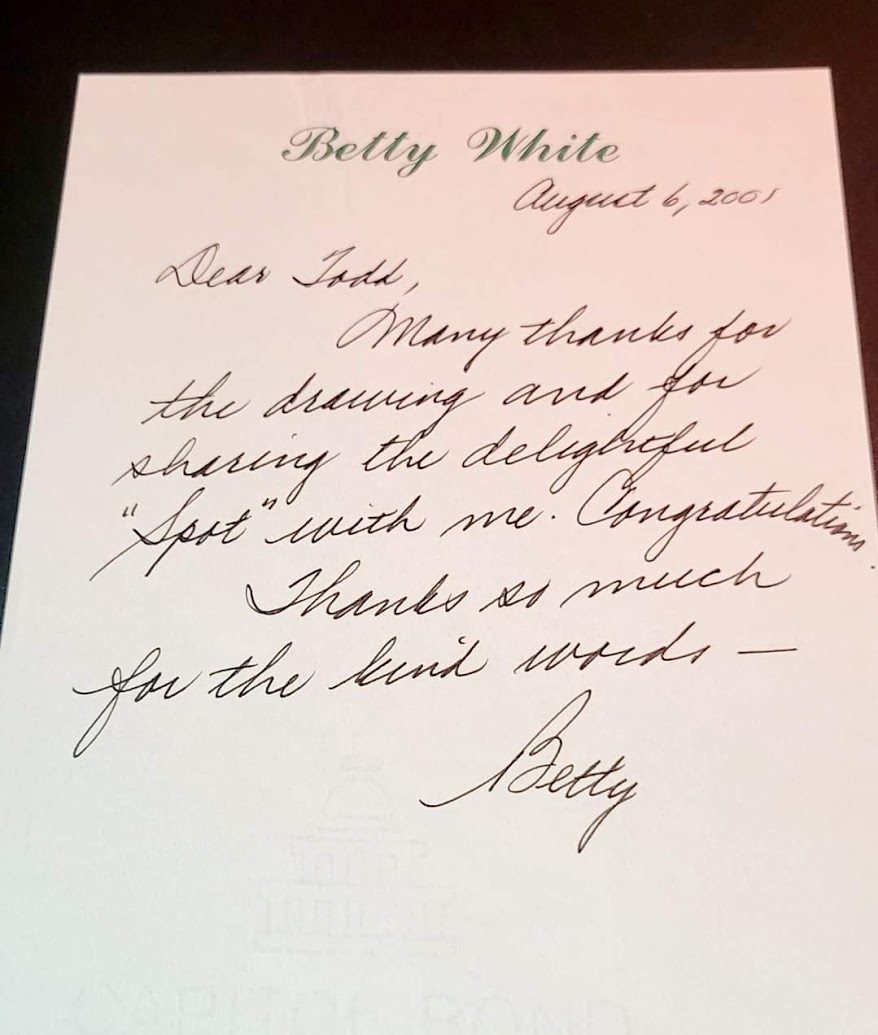 Betty White
August 6, 2001
Dear Todd,
Many thanks for
the drawing and for
sharing the delightful
"Spot" with me. Congratulations.
Thanks so much
for the kind words —
Betty
CAPITOL BOND